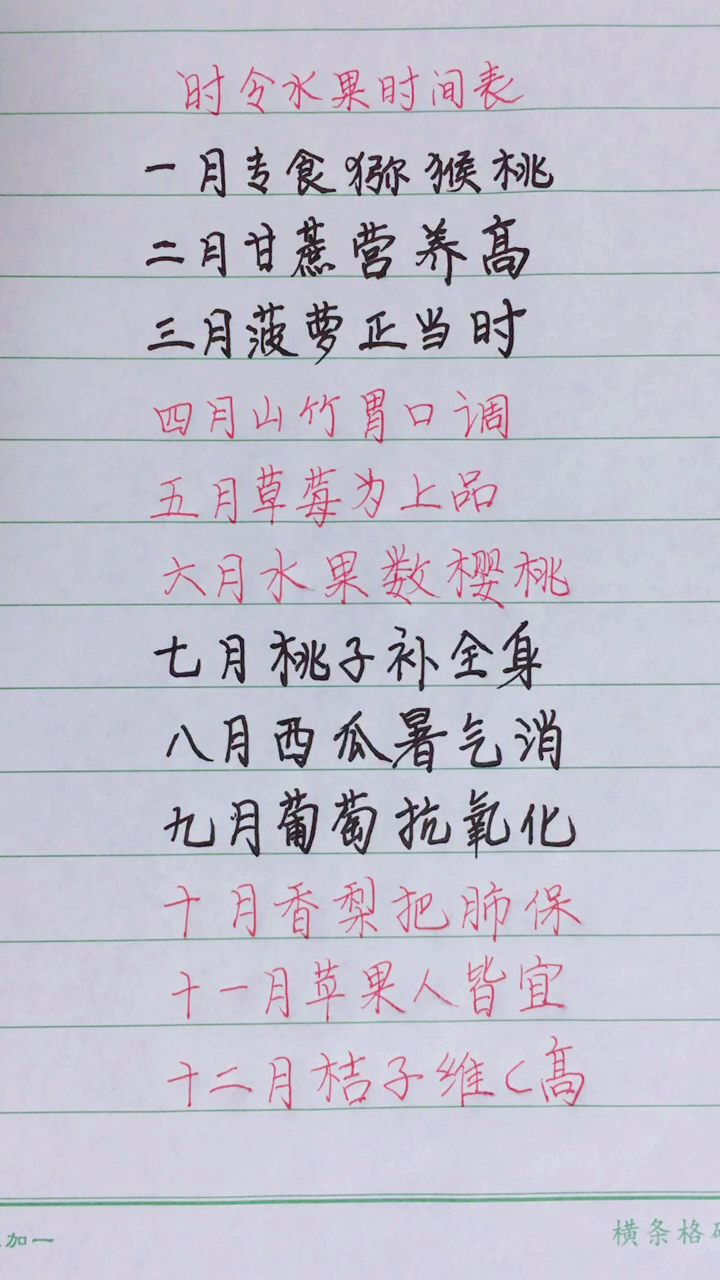 时令水果时间表
一月专食猕猴桃
二月甘蔗营养高
三月菠萝正当时
四月山竹胃口调
五月草莓为上品
六月水果数樱桃
七月桃子补全身
八月西瓜暑气消
九月葡萄抗氧化
十月香梨把肺保
十一月草果人皆宜
十二月桔子维C高
加一
横条格